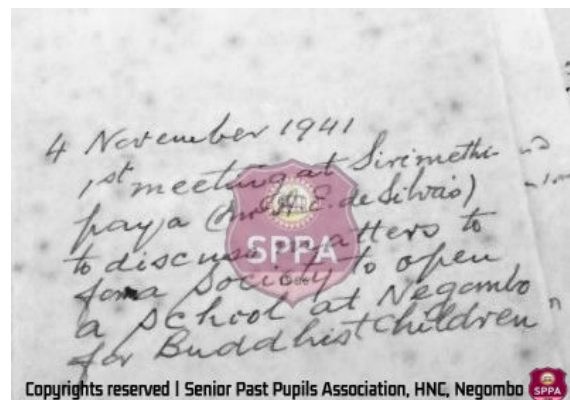 4 November 1941
1st meeting at Sirimethi
paya (Mr. E. de Silva's)
to discuss matters to
form a Society to open
a school at Negombo
for Buddhist Children"
SPPA
Copyrights reserved | Senior Past Pupils Association, HNC, Negombo
SPPA